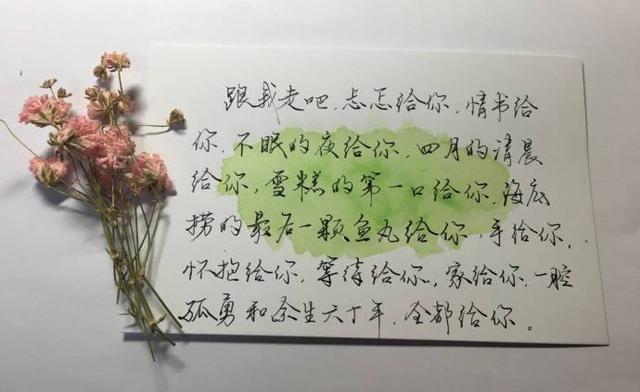 跟我走吧,忐忑给你,情书给
你,不眠的夜给你,四月的清晨
给你,雪糕的第一口给你,海底
捞的最后一颗鱼丸给你,手给你,
怀抱给你,等待给你,家给你,一腔
孤勇和余生六十年,全都给你。